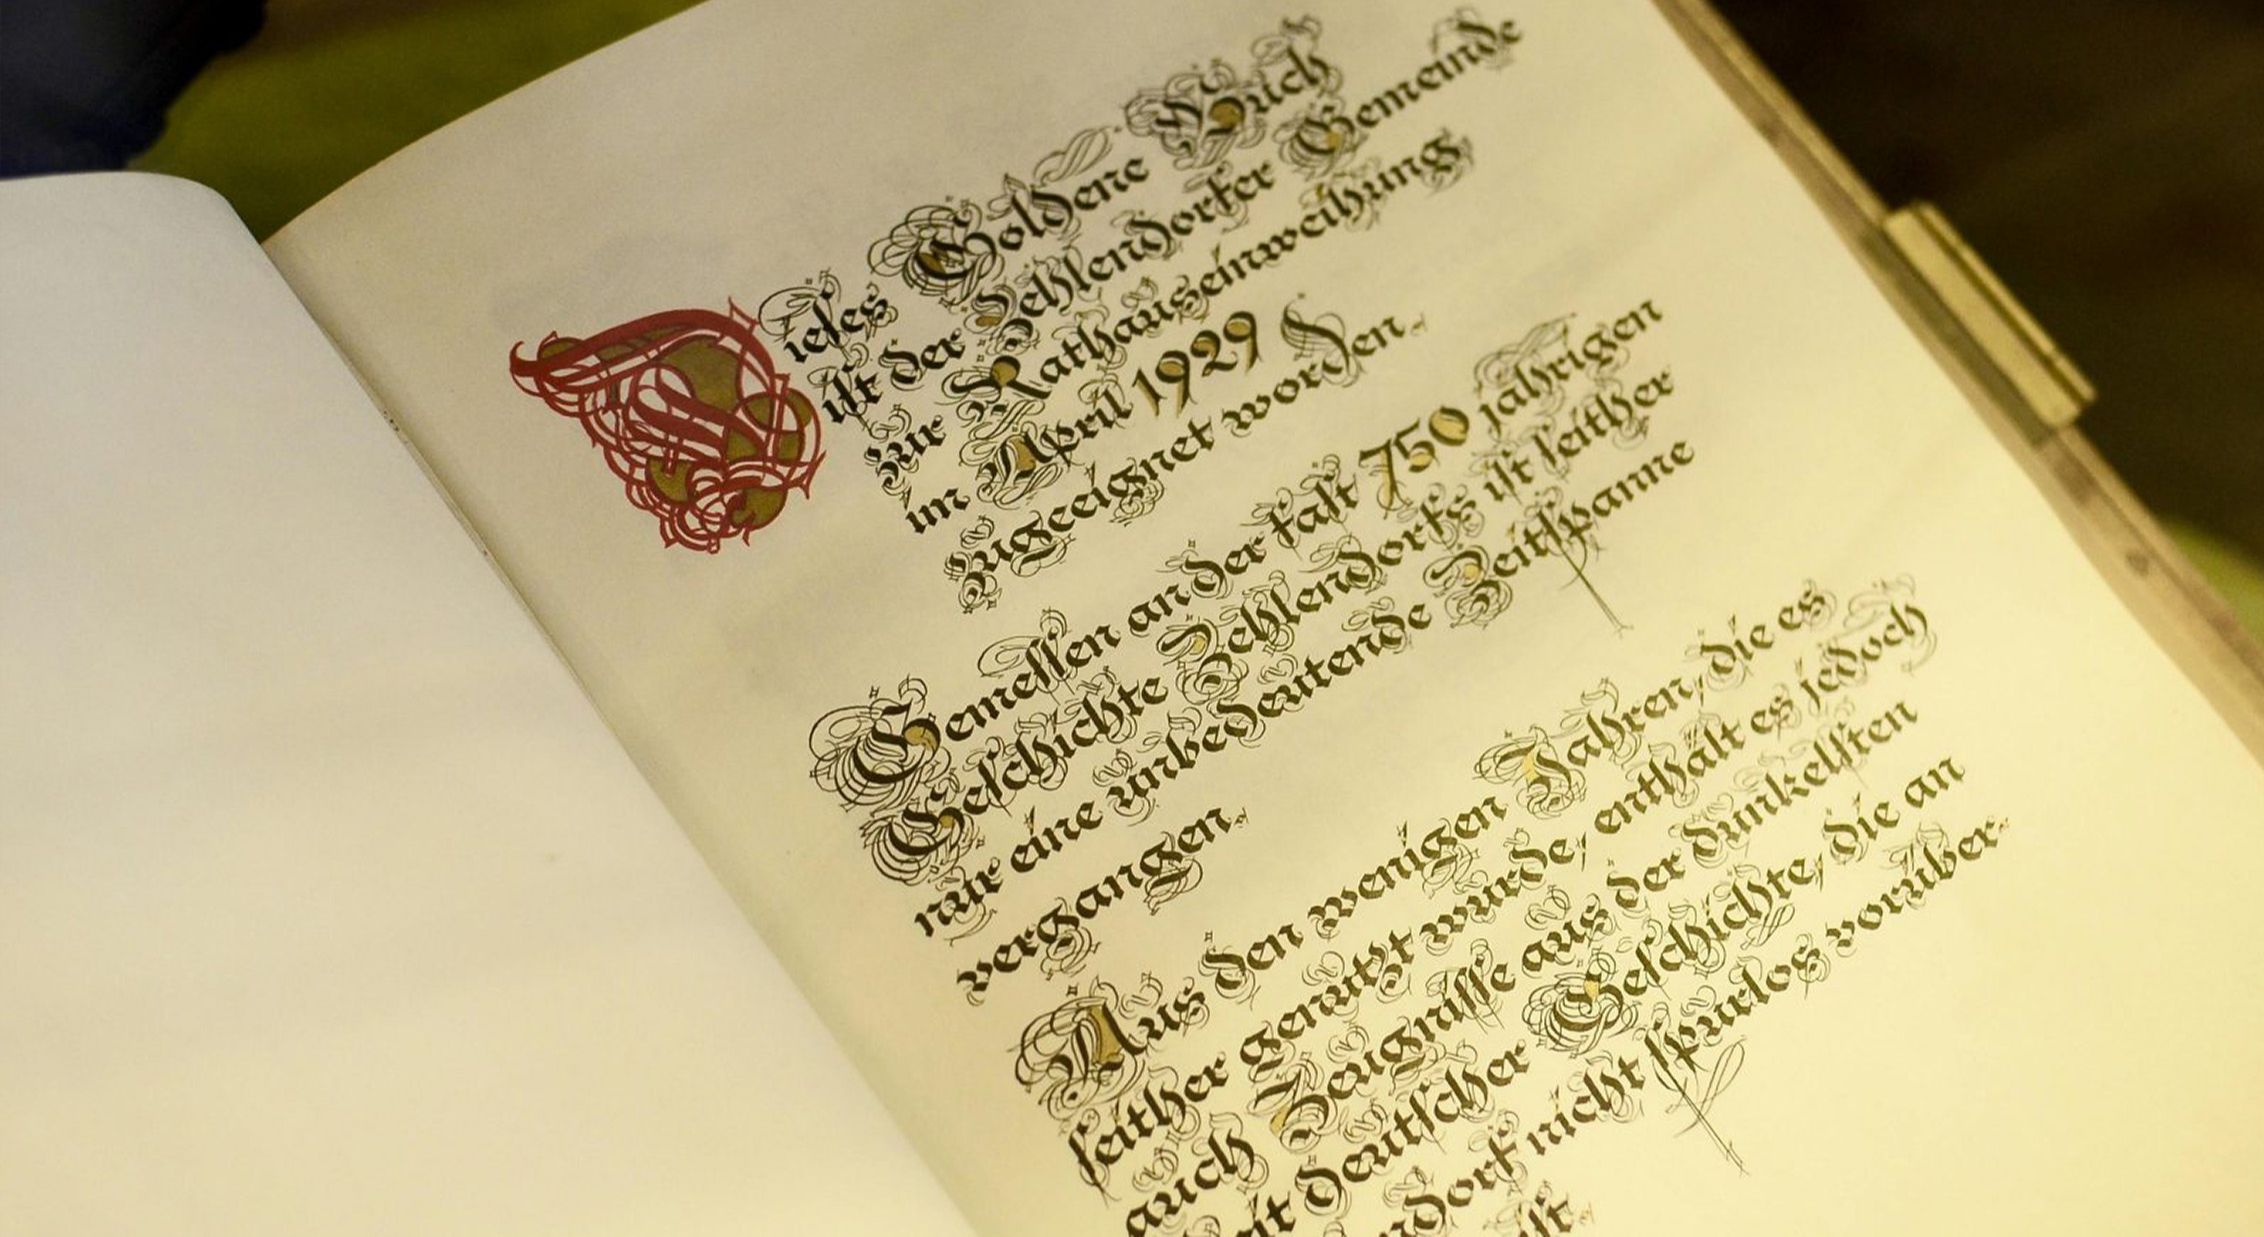 Dieses Goldene Buch
ist der Zehlendorfer Gemeinde
zur Rathauseinweihung
im April 1929
zugeeignet worden.
Gemessen an der fast 750 jährigen
Geschichte Zehlendorfs ist seither
nur eine unbedeutende Zeitspanne
vergangen.
Aus den wenigen Jahren, die es
seither genutzt wurde, enthält es jedoch
auch Zeugnisse aus der dunkelsten
deutscher Geschichte, die an
nicht spurlos vorüber